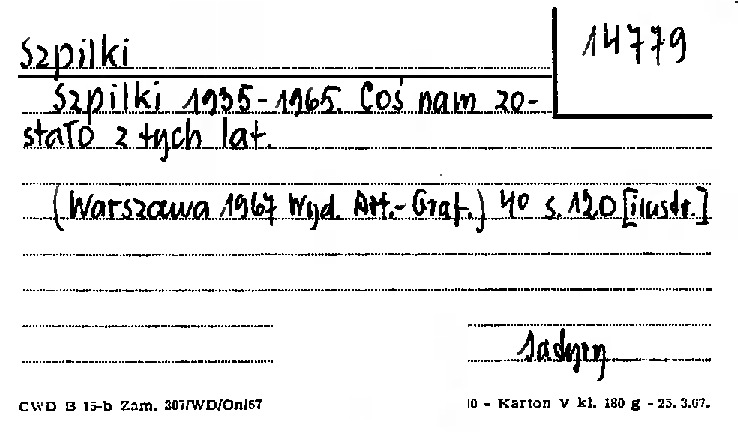 Szpilki
14779
Szpilki 1935-1965. Coś nam zo-
stało z tych lat.
(Warszawa 1967 Wyd. Art.-Graf.) 4° s. 120 [ilustr.]
CWD B 15-b Zam. 307/WD/Onl67
10 - Karton V kl. 180 g - 25. 3.67.